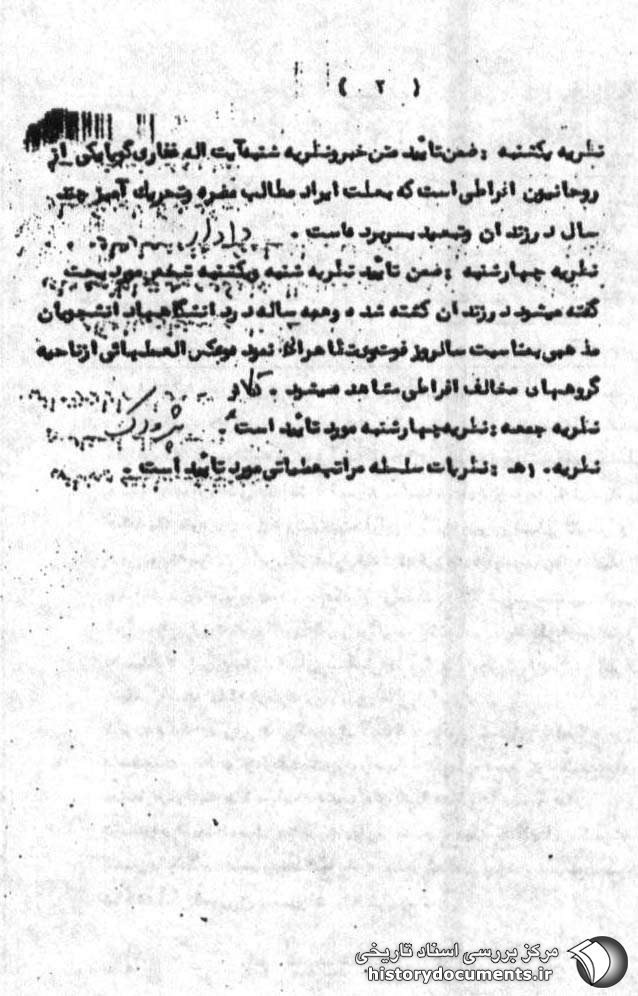 ( ٢ )
نظریه یکشنبه : ضمن تائید متن خبر و نظریه شنبه آیت اله غفاری گویا یکی از
روحانیون افراطی است که بعلت ایراد مطالب مضره و تحریک آمیز چند
سال در زندان و تبعید بسر برده است .
نظریه چهارشنبه : ضمن تائید نظریه شنبه و یکشنبه شخص مورد بحث
گفته میشود در زندان کشته شده و همه ساله در دانشگاهها دانشجویان
مذهبی بمناسبت سالروز فوت وی تظاهراتی نموده و عکس العملهائی از ناحیه
گروههای مخالف افراطی مشاهده میشود .
نظریه جمعه : نظریه چهارشنبه مورد تائید است .
نظریه ۱۰ هـ : نظریات سلسله مراتب عملیاتی مورد تائید است .
مرکز بررسی اسناد تاریخی
historydocuments.ir